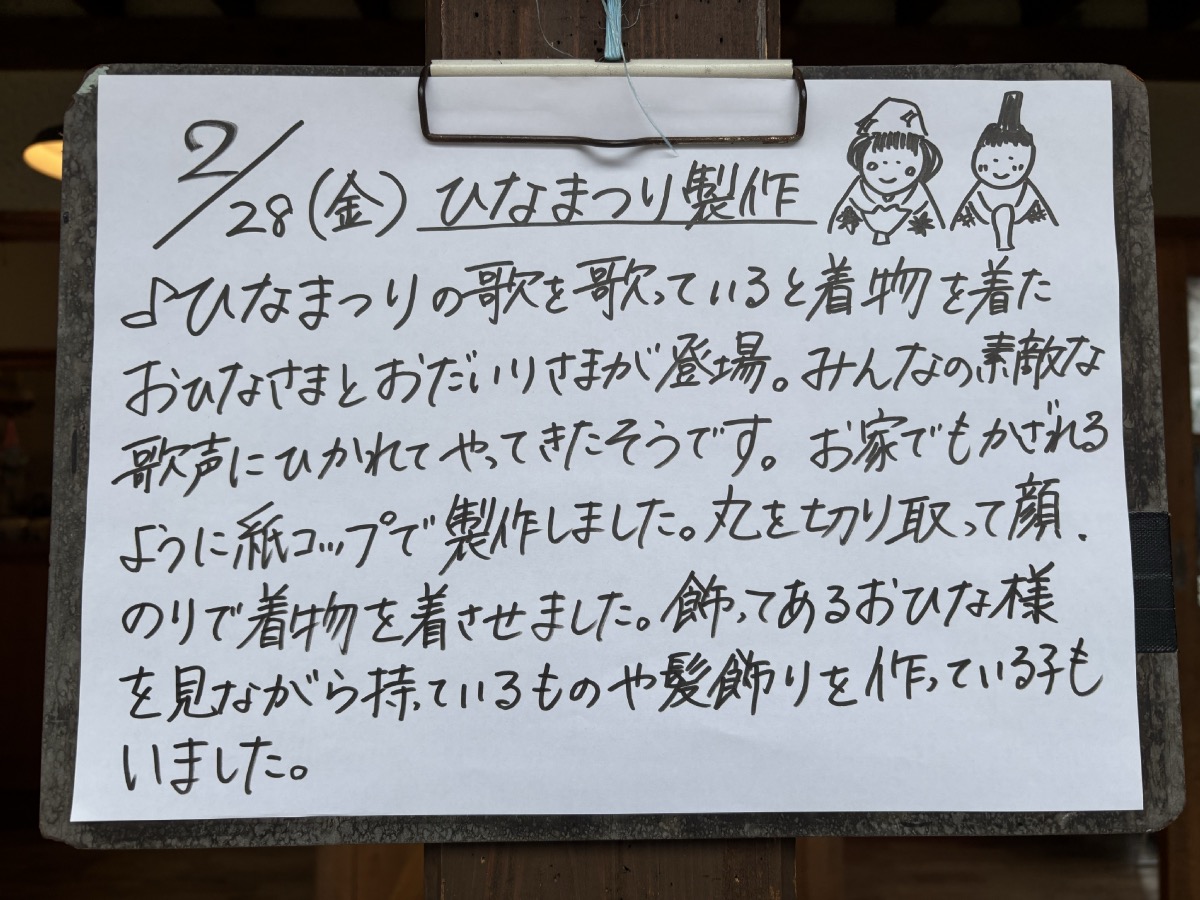 2/28(金) ひなまつり製作
♪ひなまつりの歌を歌っていると着物を着た
おひなさまとおだいりさまが登場。みんなの素敵な
歌声にひかれてやってきたそうです。お家でもかざれる
ように紙コップで製作しました。丸を切り取って顔、
のりで着物を着させました。飾ってあるおひな様
を見ながら持っているものや髪飾りを作っている子も
いました。